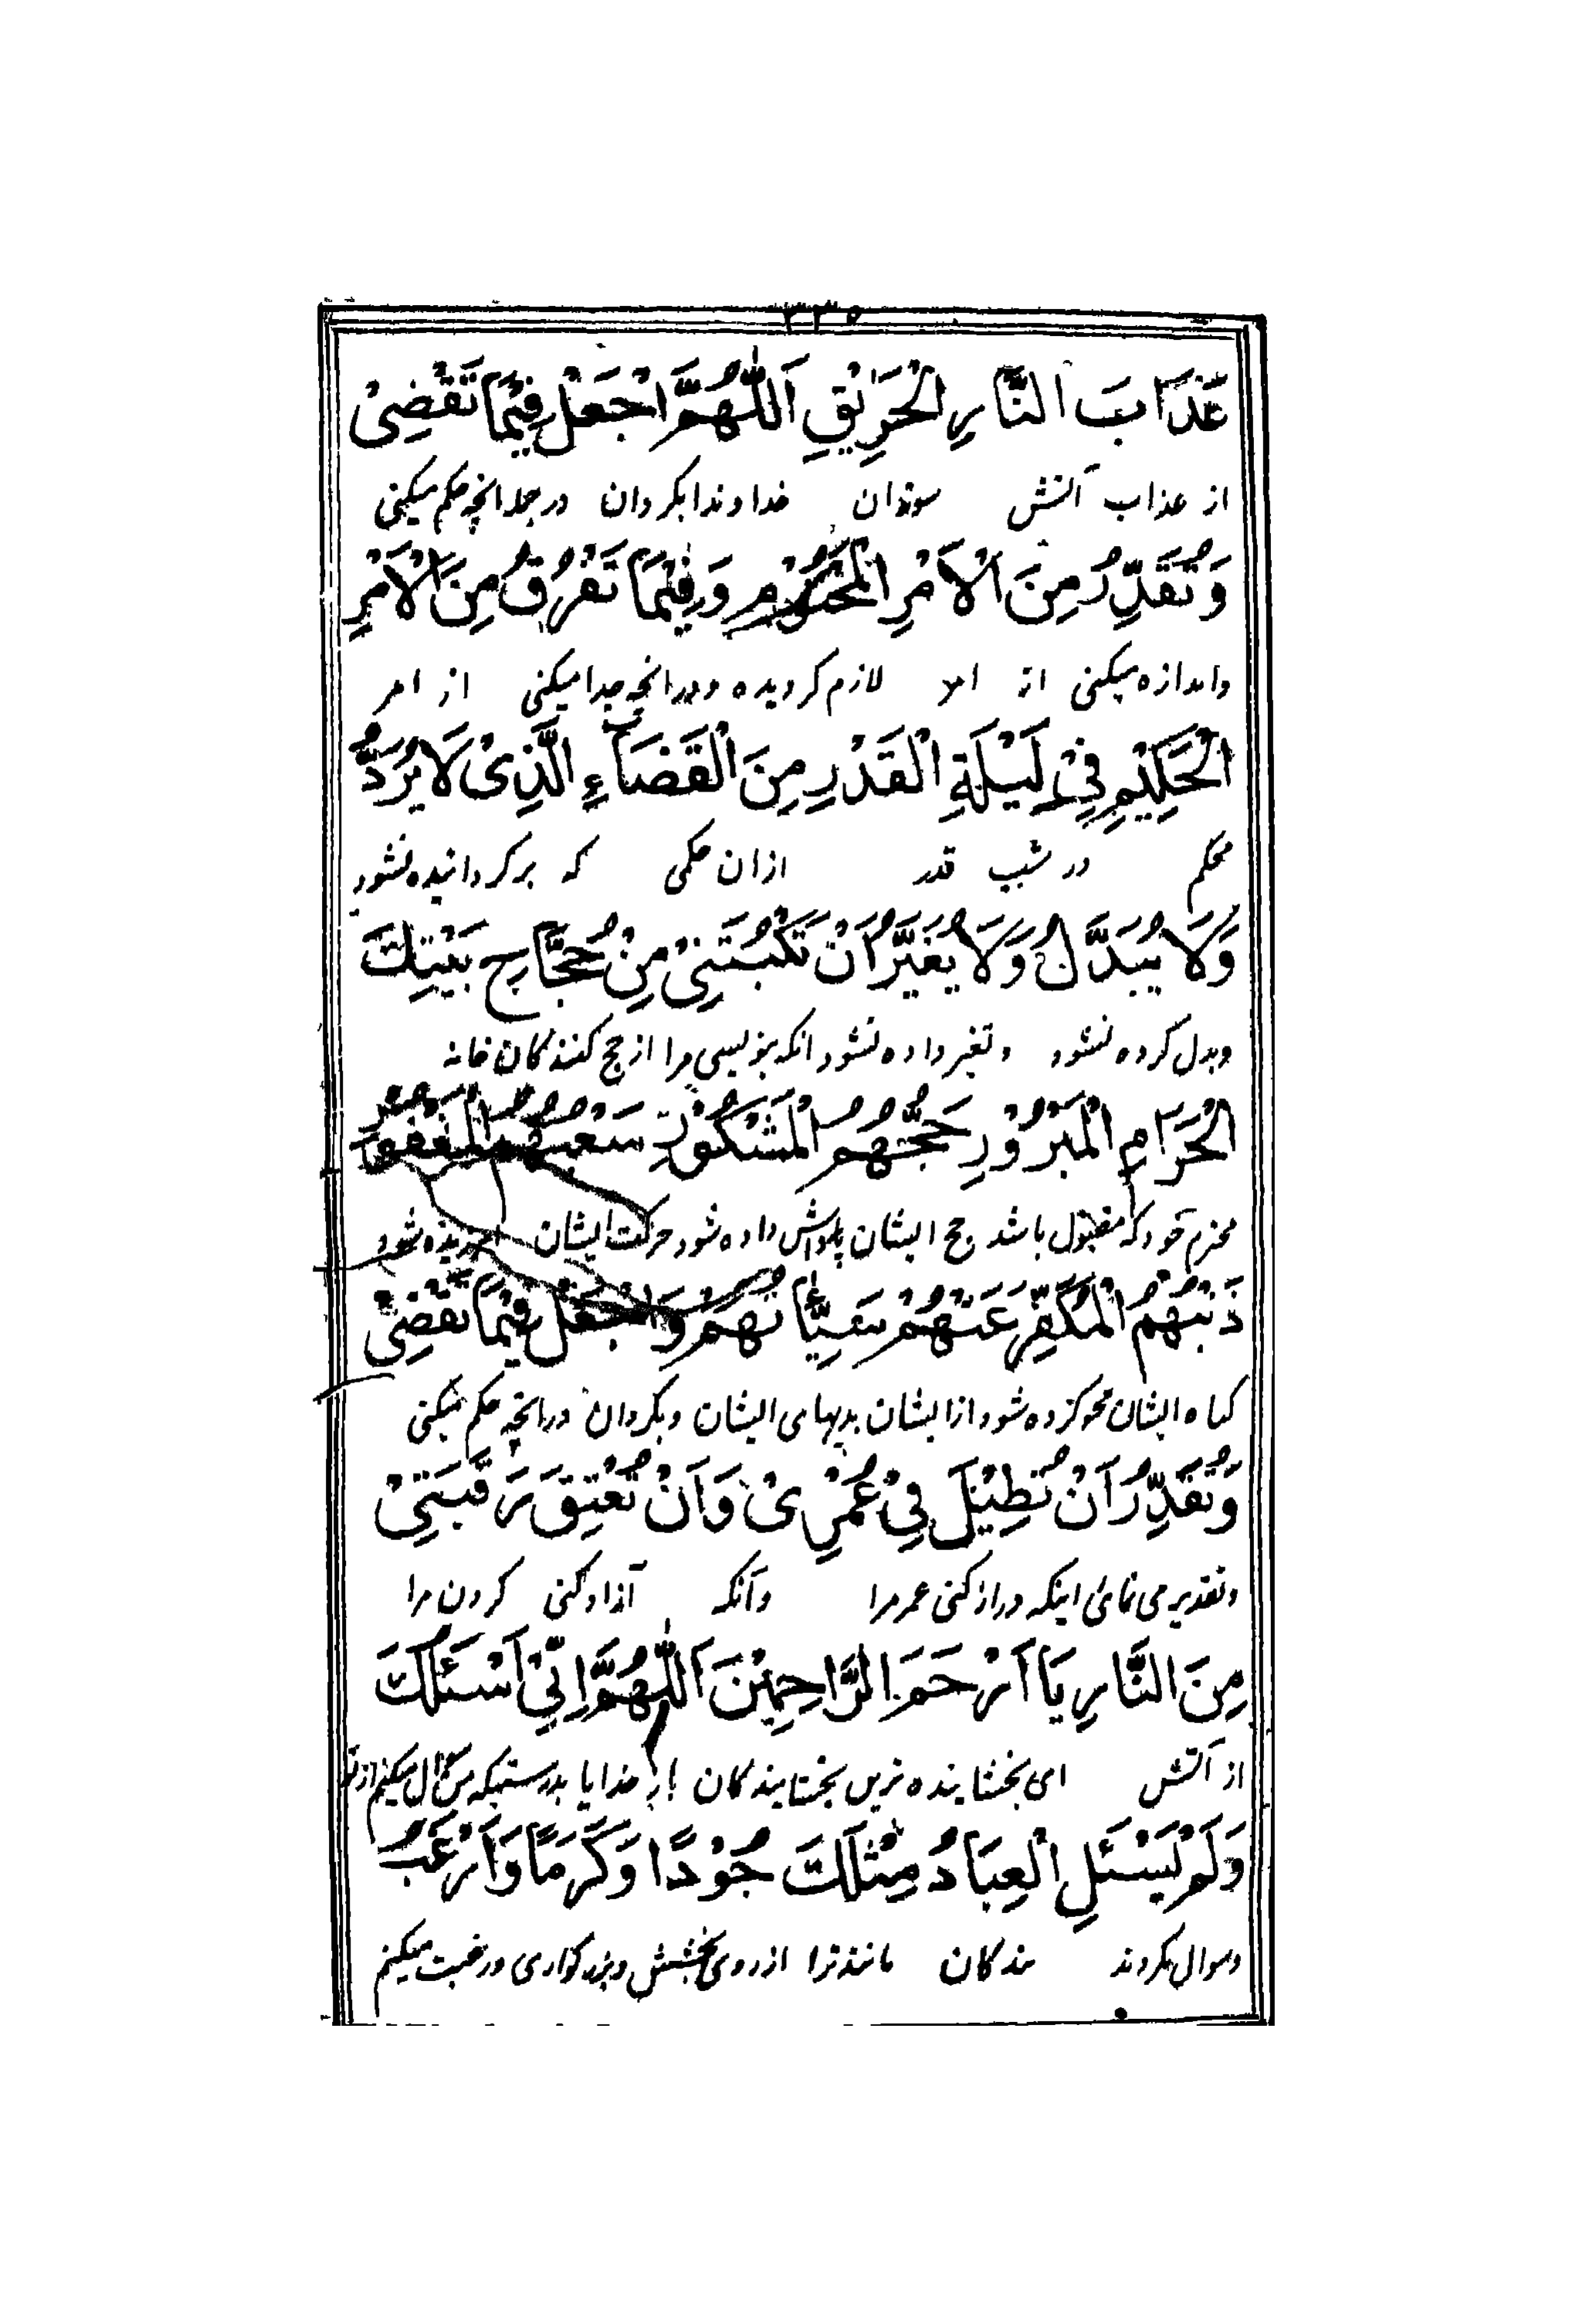 ۳۳۵
عَذَابَ النَّارِ الْحَرِيْقِ اَللّٰهُمَّ اجْعَلْ فِيْمَا تَقْضِىْ
از عذاب آتش سوزان خداوندا بكردان در جمله انچه حكم ميكنى
وَتُقَدِّرُ مِنَ الْاَمْرِ الْمَحْتُوْمِ وَفِيْمَا تَفْرُقُ مِنَ الْاَمْرِ
واندازه ميكنى از امر لازم كرديده ودرانچه جدا ميكنى از امر
الْحَكِيْمِ فِىْ لَيْلَةِ الْقَدْرِ مِنَ الْقَضَاۤءِ الَّذِىْ لَا يُرَدُّ
محكم در شب قدر ازان حكمى كه بركردانيده نشود
وَلَا يُبَدَّلُ وَلَا يُغَيَّرُ اَنْ تَكْتُبَنِىْ مِنْ حُجَّاجِ بَيْتِكَ
وبدل كرده نشود وتغير داده نشود انكه بنويسى مرا از حج كنندكان خانه
الْحَرَامِ الْمَبْرُوْرِ حَجُّهُمُ الْمَشْكُوْرِ سَعْيُهُمُ الْمَغْفُوْرِ
محترم خود كه مقبول باشد حج ايشان پاداش داده شود حركت ايشان امرزيده شود
ذَنْبُهُمُ الْمُكَفَّرِ عَنْهُمْ سَيِّئَاتُهُمْ وَاجْعَلْ فِيْمَا تَقْضِىْ
كناه ايشان محو كرده شود از ايشان بديهاى ايشان وبكردان درانچه حكم ميكنى
وَتُقَدِّرُ اَنْ تُطِيْلَ فِىْ عُمْرِىْ وَاَنْ تُعْتِقَ رَقَبَتِىْ
وتقدير مى نمائى اينكه دراز كنى عمر مرا وآنكه آزاد كنى كردن مرا
مِنَ النَّارِ يَا اَرْحَمَ الرَّاحِمِيْنَ اَللّٰهُمَّ اِنِّىْ اَسْئَلُكَ
از آتش اى بخشاينده ترين بخشايندكان خدايا بدرستيكه من سوال ميكنم از تو
وَلَمْ يَسْئَلِ الْعِبَادُ مِثْلَكَ جُوْدًا وَكَرَمًا وَاَرْغَبُ
وسوال نكردند بندكان مانند ترا از روى بخشش وبزركوارى ورغبت ميكنم